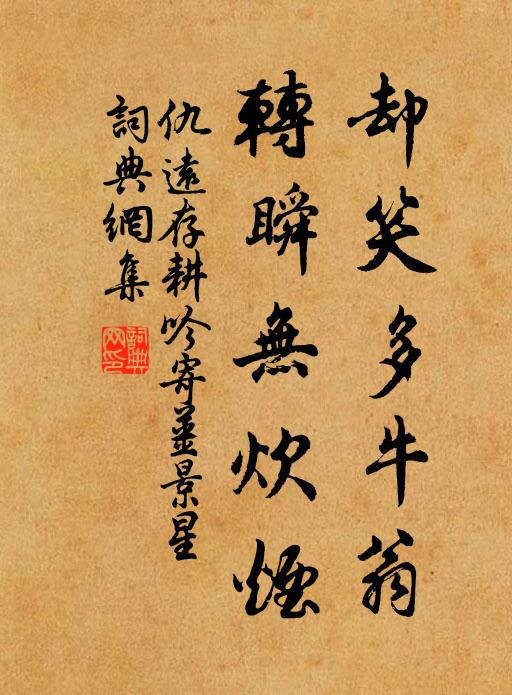 却笑多牛翁
轉瞬無炊煙
仇遠存耕吟寄薑景星
詞典網集
詞典網印